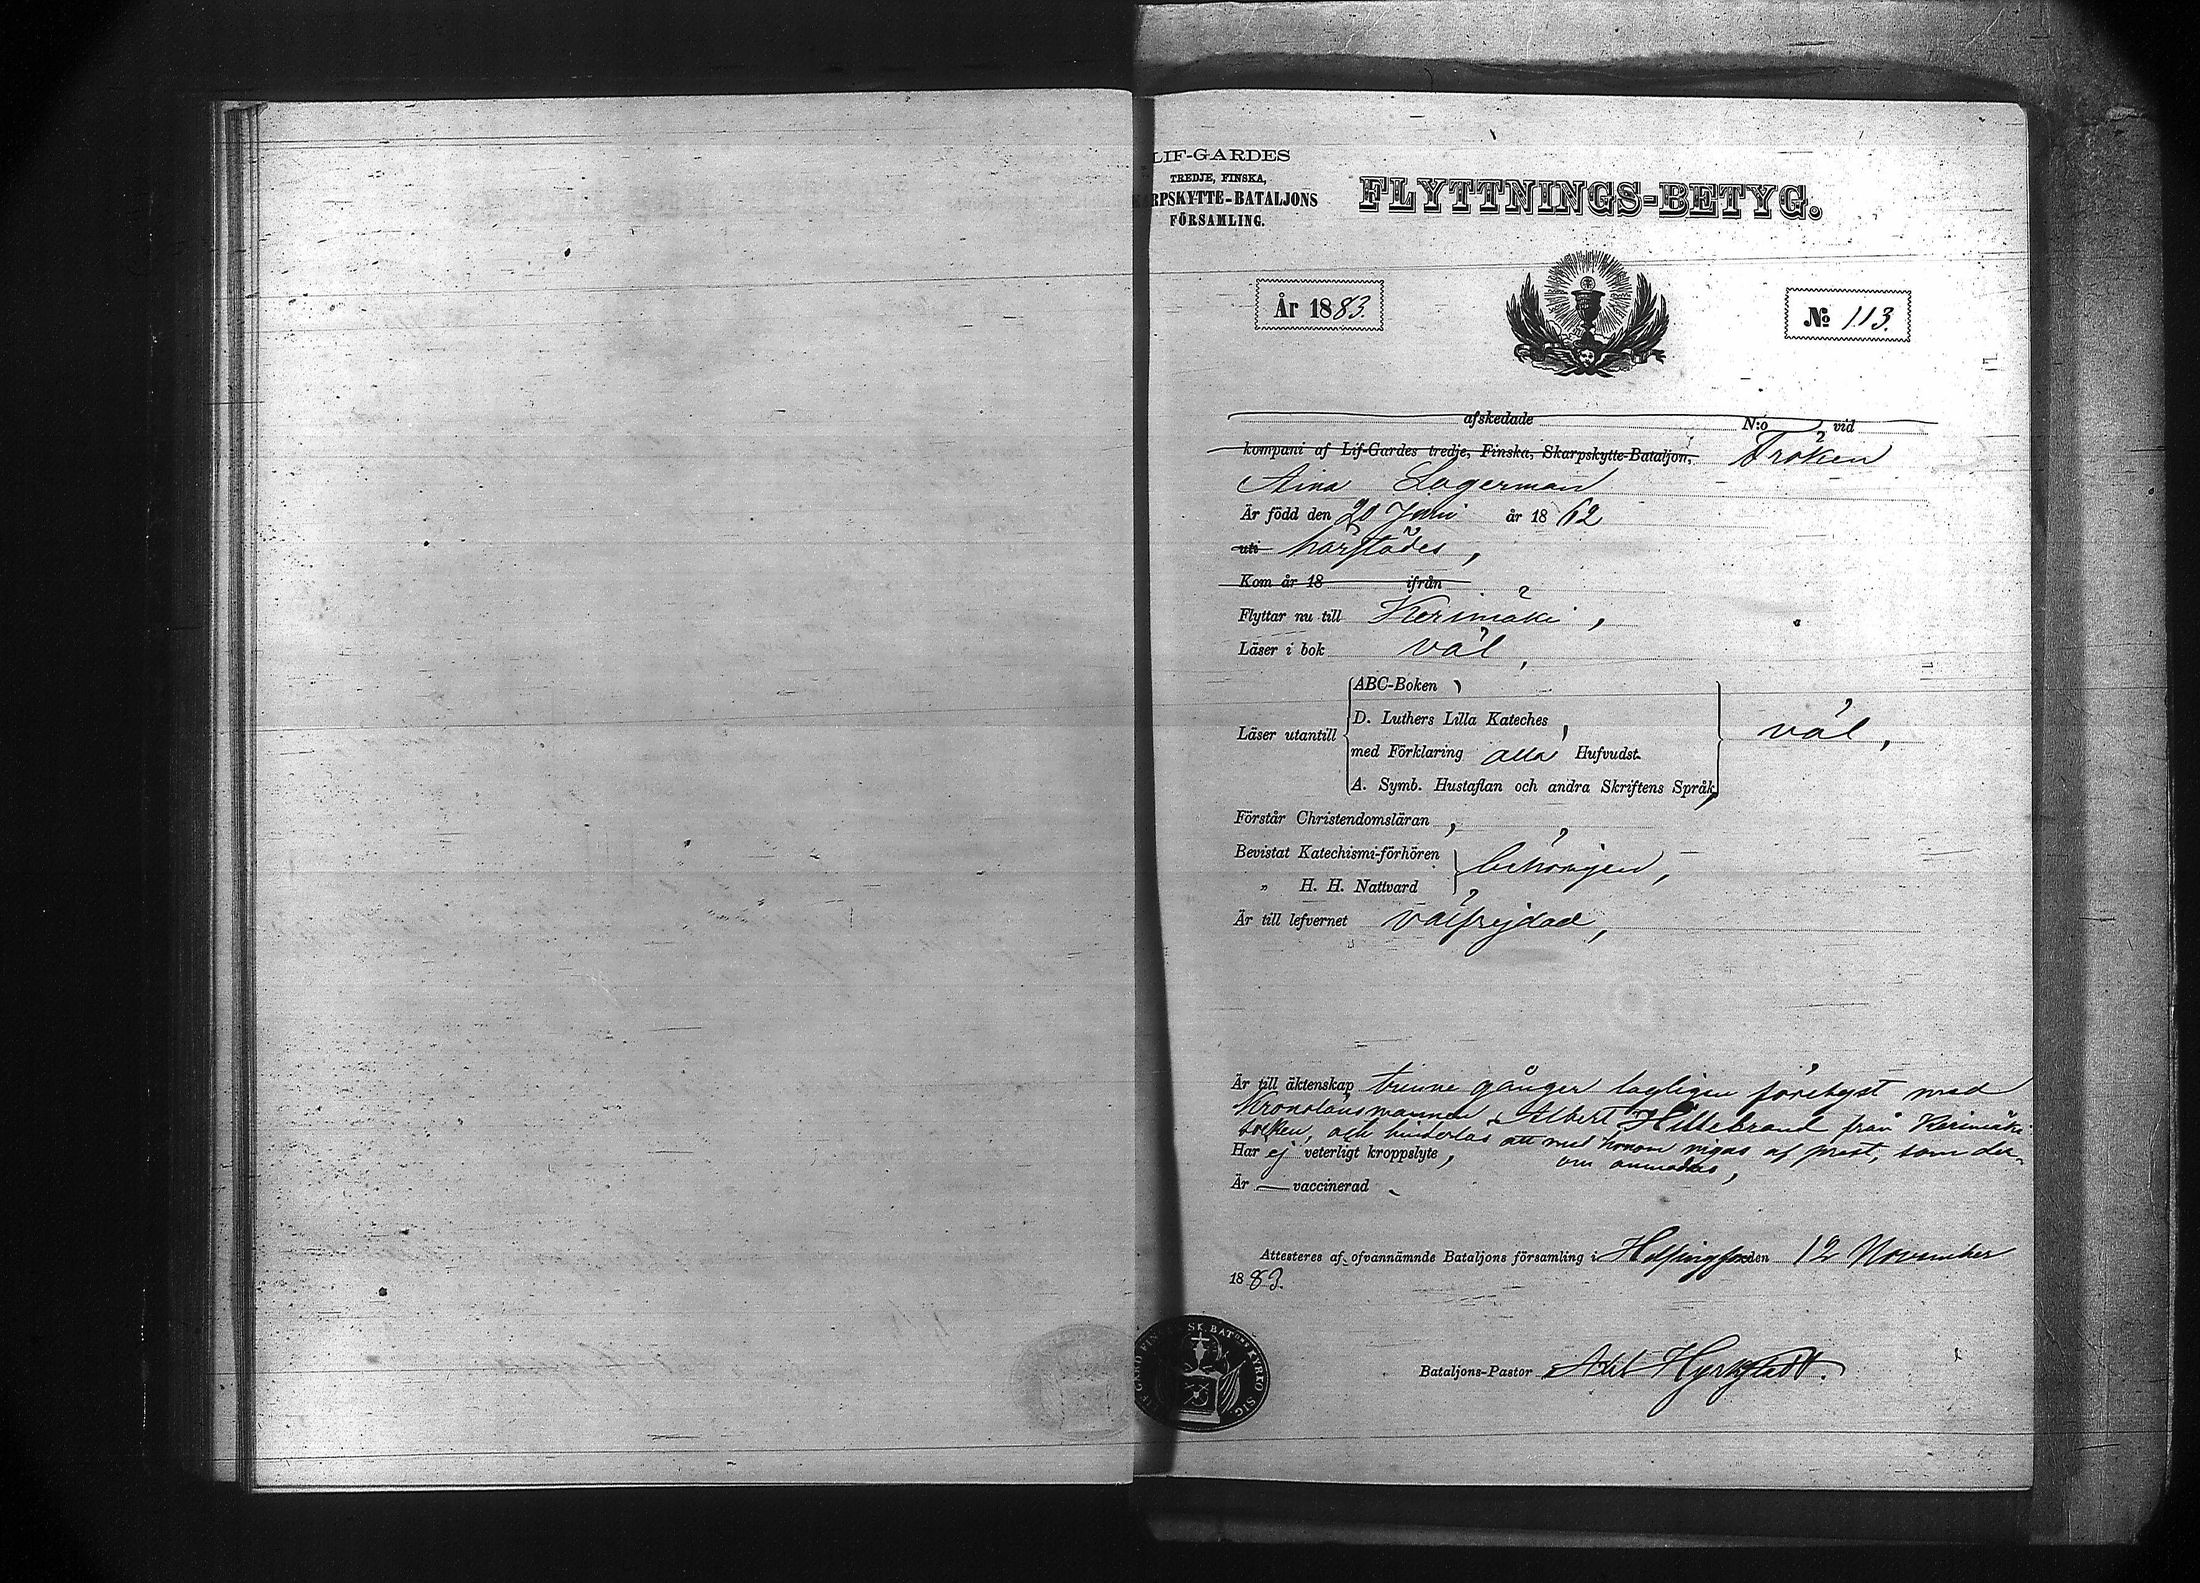 LIF-GARDES
TREDJE, FINSKA,
RPSKYTTE-BATALJONS
FÖRSAMLING.
FLYTTNINGS-BETYG.
År 1883.
No 113.
afskedade N:o vid
kompani af Lif-Gardes tredje, Finska, Skarpskytte-Bataljon, Fröken
Aina Lagerman
Är född den 20 Juni år 1862
uti härstädes,
Kom år 18 ifrån
Flyttar nu till Kerimäki,
Läser i bok väl,
ABC-Boken,
D. Luthers Lilla Kateches,
Läser utantill
med Förklaring alla Hufvudst.
väl,
A. Symb. Hustaflan och andra Skriftens Språk,
Förstår Christendomsläran,
Bevistat Katechismi-förhören
behörigen,
" H. H. Nattvard
Är till lefvernet välfrejdad,
Är till äktenskap trenne gånger lagligen förelyst med
Kronolänsmannen Albert Hillebrand från Kerimäki
socken, och hinderlös att med honom vigas af prest, som der-
om anmodas,
Har ej veterligt kroppslyte,
Är — vaccinerad
Attesteres af ofvannämnde Bataljons församling i Helsingfors den 12 November
1883.
Bataljons-Pastor Axel Hyrkstedt.